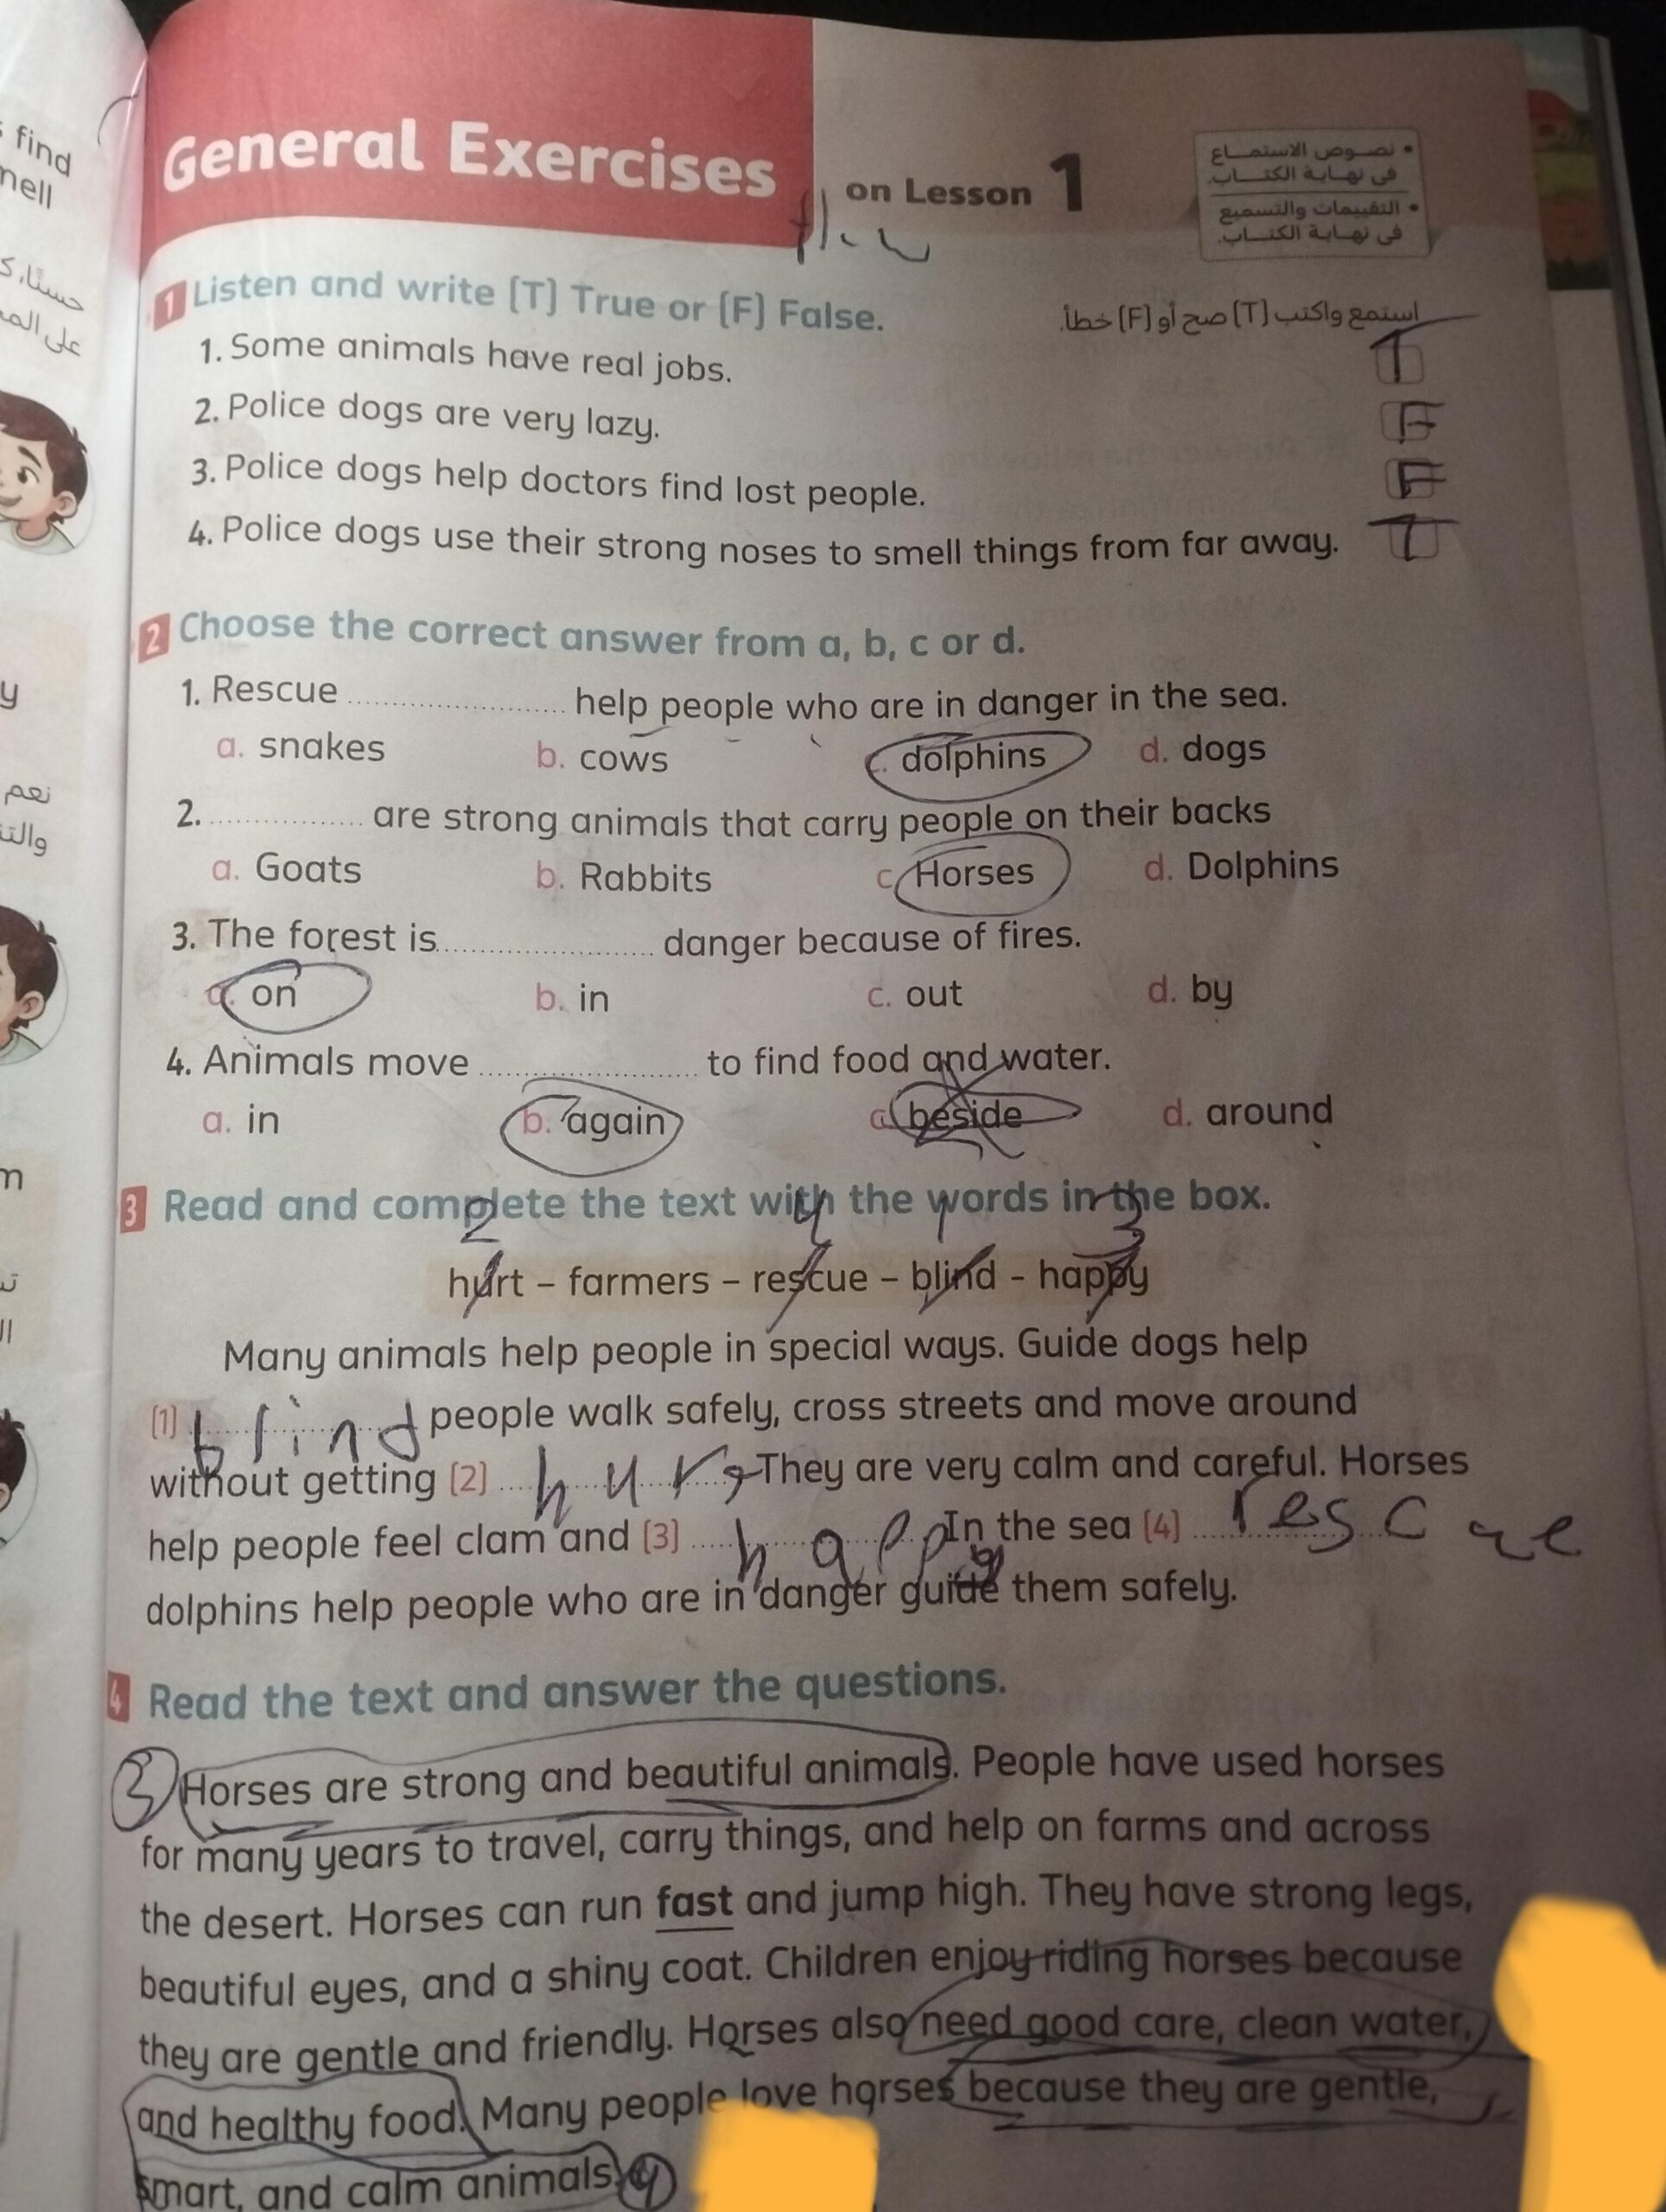 find
mell
حسنًا، ك
على الم
y
نعم
والتن
m
General Exercises
on Lesson 1
• نصوص الاستماع
فى نهاية الكتاب.
• التقييمات والتسميع
فى نهاية الكتاب.
1 Listen and write [T] True or [F] False.
استمع واكتب [T] صح أو [F] خطأ.
1. Some animals have real jobs. T
2. Police dogs are very lazy. F
3. Police dogs help doctors find lost people. F
4. Police dogs use their strong noses to smell things from far away. T
2 Choose the correct answer from a, b, c or d.
1. Rescue ...................... help people who are in danger in the sea.
a. snakes b. cows c. dolphins d. dogs
2. ................ are strong animals that carry people on their backs
a. Goats b. Rabbits c. Horses d. Dolphins
3. The forest is ...................... danger because of fires.
a. on b. in c. out d. by
4. Animals move ...................... to find food and water.
a. in b. again c. beside d. around
3 Read and complete the text with the words in the box.
2 4 1 3
hurt – farmers – rescue – blind - happy
Many animals help people in special ways. Guide dogs help
[1] blind people walk safely, cross streets and move around
without getting [2] hurt They are very calm and careful. Horses
help people feel clam and [3] happy In the sea [4] rescue
dolphins help people who are in danger guide them safely.
4 Read the text and answer the questions.
3 Horses are strong and beautiful animals. People have used horses
for many years to travel, carry things, and help on farms and across
the desert. Horses can run fast and jump high. They have strong legs,
beautiful eyes, and a shiny coat. Children enjoy riding horses because
they are gentle and friendly. Horses also need good care, clean water,
and healthy food. Many people love horses because they are gentle,
smart, and calm animals. 4